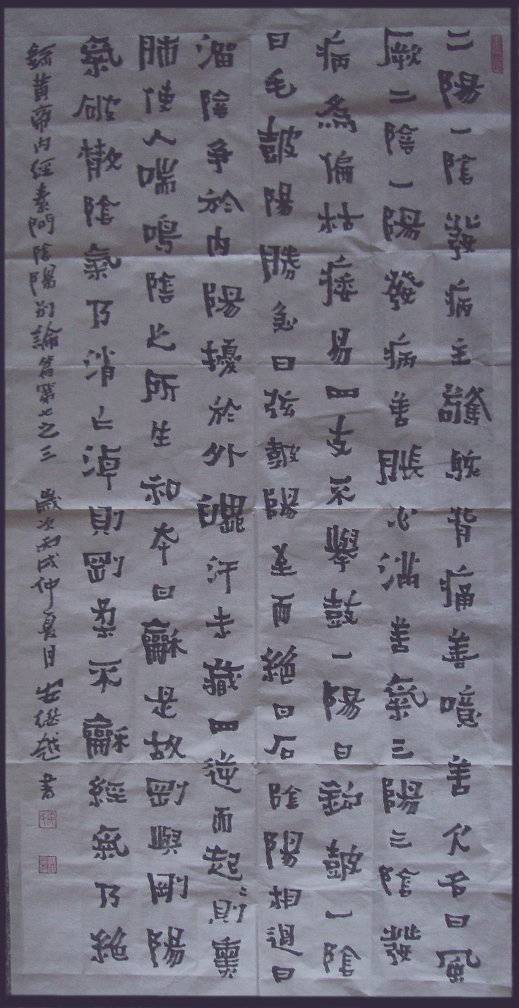 二陽一陰發病主驚駭背痛善噫善欠名曰風
厥二陰一陽發病善脹心滿善氣三陽三陰發
病為偏枯痿易四支不舉鼓一陽曰鉤皷一陰
曰毛皷陽勝急曰弦皷陽至而絕曰石陰陽相過曰
溜陰爭於內陽擾於外魄汗未藏四逆而起〻則熏
肺使人喘鳴陰之所生和本曰龢是故剛與剛陽
氣破散陰氣乃消亡淖則剛柔不龢經氣乃絕
錄黃帝內經素問陰陽別論篇第七之三 歲次丙戌仲夏日 越書